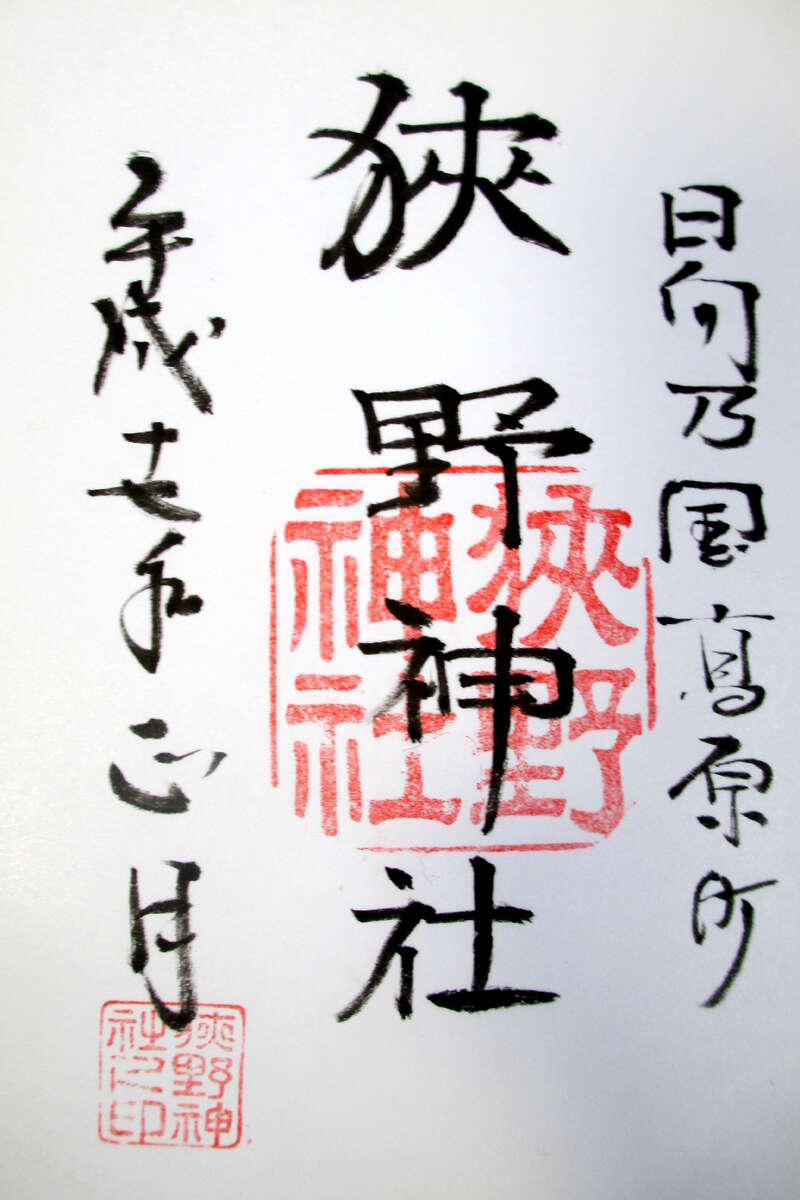 日向乃国高原町
狹野神社
平成十七年正月
狹野
神社
狹野神
社之印